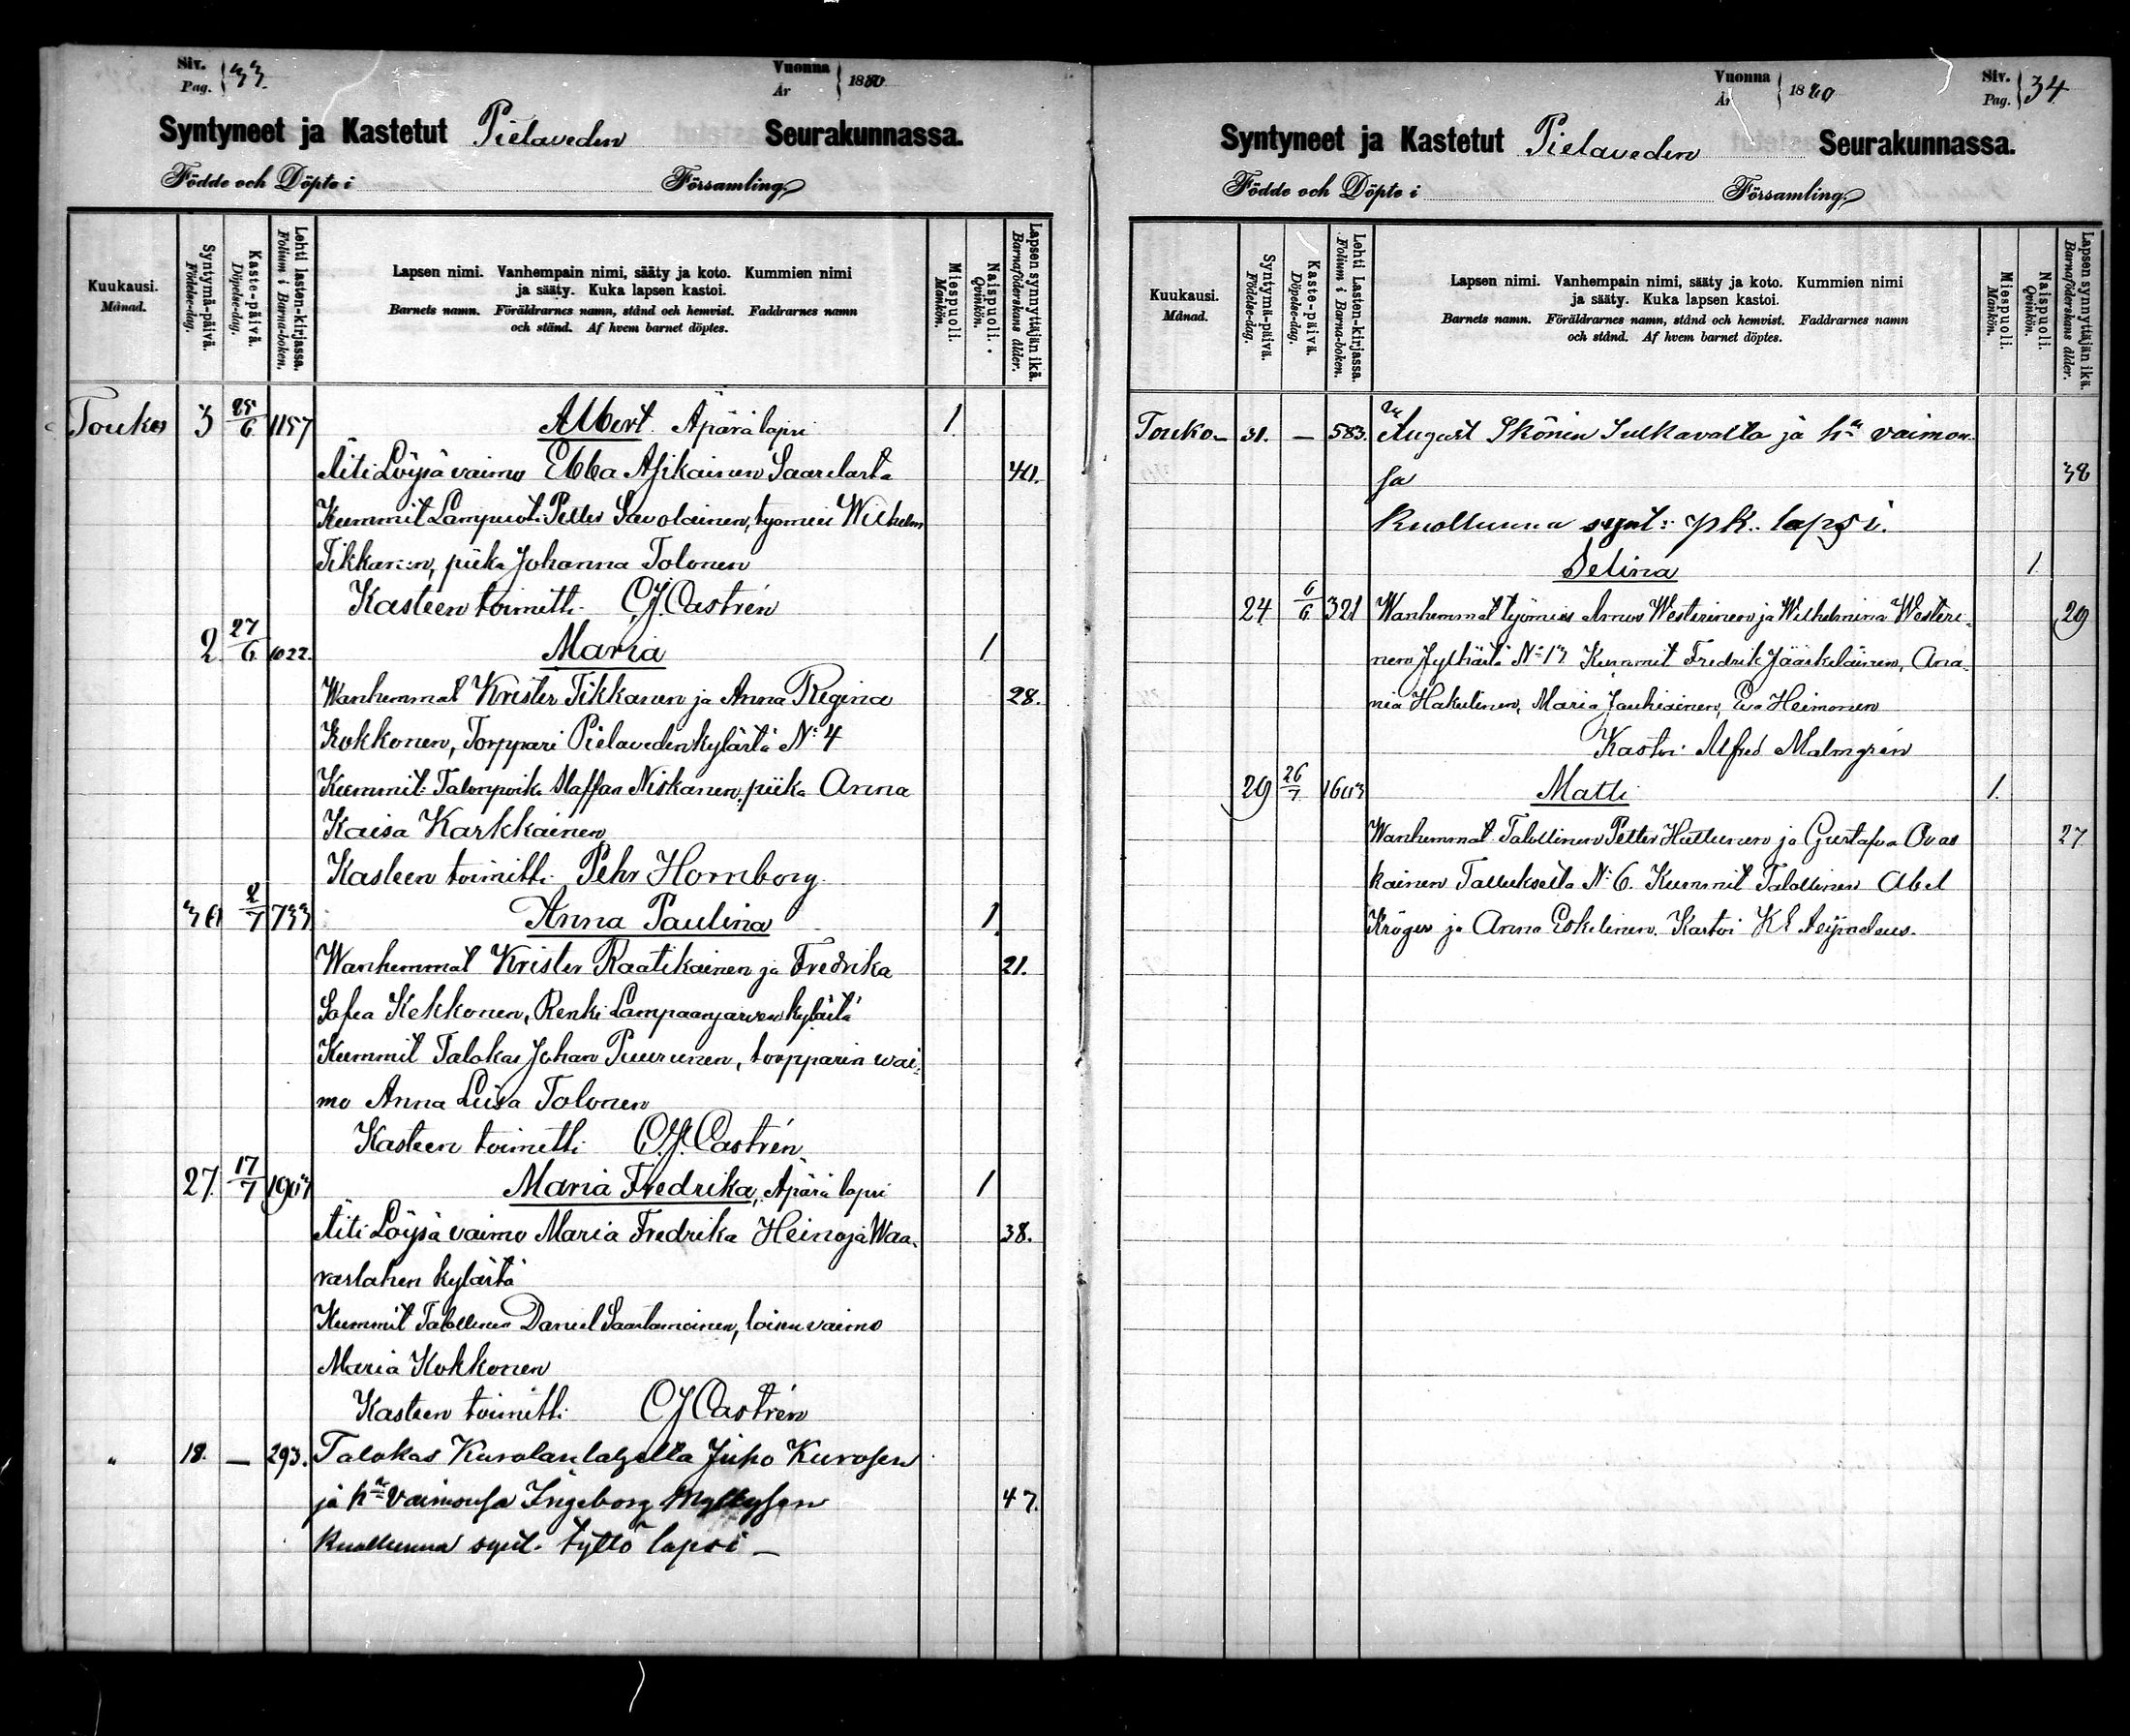 Siv. Pag. 33.
Vuonna År 1880
Syntyneet ja Kastetut Pielaveden Seurakunnassa.
Födde och Döpte i Församling
Kuukausi. Månad.
Syntymä-päivä. Födelse-dag.
Kaste-päivä. Döpelse-dag.
Lehti lasten-kirjassa. Folium i Barna-boken.
Lapsen nimi. Vanhempain nimi, sääty ja koto. Kummien nimi
ja sääty. Kuka lapsen kastoi.
Barnets namn. Föräldrarnes namn, stånd och hemvist. Faddrarnes namn
och stånd. Af hvem barnet döptes.
Miespuoli. Mankön.
Naispuoli. Qvinkön.
Lapsen synnyttäjän ikä. Barnaföderskans ålder.
Touko 3 25/6 1157 Albert. Äpärä lapsi 1.
Äiti Löysä vaimo Ebba Asikainen Saarelasta 40.
Kummit Lampuoti Petter Savolainen, työmies Wilhelm
Tikkanen, piika Johanna Tolonen
Kasteen toimitti C.J. Castrén
2 27/6 1022. Maria 1
Wanhemmat Krister Tikkanen ja Anna Regina 28.
Kokkonen, Torppari Pielavedenkylästä N:4
Kummit: Talonpoika Staffan Niskanen, piika Anna
Kaisa Karkkainen
Kasteen toimitti Pehr Hornborg.
30 2/7 733 Anna Paulina 1
Wanhemmat Krister Raatikainen ja Fredrika 21.
Sofia Kekkonen, Renki Lampaanjärven kylästä
Kummit Talokas Johan Puurunen, torpparin wai-
mo Anna Liisa Tolonen
Kasteen toimitti C.J. Castrén.
27. 17/7 1903 Maria Fredrika, Äpärä lapsi 1
Äiti Löysä vaimo Maria Fredrika Heinoja Waa- 38.
raslahen kylästä
Kummit Talollinen Daniel Saastamoinen, loisen vaimo
Maria Kokkonen
Kasteen toimitti C J Castrén
" 18. — 293. Talokas Kurolanlahella Juho Kurosen
ja hn vaimonsa Ingeborg Myllysen 47.
Kuolluna synt. tyttö lapsi —
Vuonna År 1880
Siv. Pag. 34
Syntyneet ja Kastetut Pielaveden Seurakunnassa.
Födde och Döpte i Församling
Kuukausi. Månad.
Syntymä-päivä. Födelse-dag.
Kaste-päivä. Döpelse-dag.
Lehti Lasten-kirjassa. Folium i Barna-boken.
Lapsen nimi. Vanhempain nimi, sääty ja koto. Kummien nimi
ja sääty. Kuka lapsen kastoi.
Barnets namn. Föräldrarnes namn, stånd och hemvist. Faddrarnes namn
och stånd. Af hvem barnet döptes.
Miespuoli. Mankön.
Naispuoli. Qvinkön.
Lapsen synnyttäjän ikä. Barnaföderskans ålder.
Touko- 31. — 583. August Skönin Sulkavalta ja hn vaimon-
sa 38
Kuolluna synt: pk. lapsi.
Selina 1
24 6/6 321 Wanhemmat työmies Westerinen ja Wilhelmina Westeri- 29
nen Jylhästä N:13 Kummit Fredrik Jääskeläinen, Ana-
nia Hakulinen, Maria Jauhiainen, Eva Heimonen
Kastoi Alfred Malmgrén
29 26/7 1603 Matti 1.
Wanhemmat Talollinen Petter Huttunen ja Gustafva Ovas 27
kainen Tallukselta N:6. Kummit Talollinen Abel
Kröger ja Anna Eskelinen. Kastoi K E